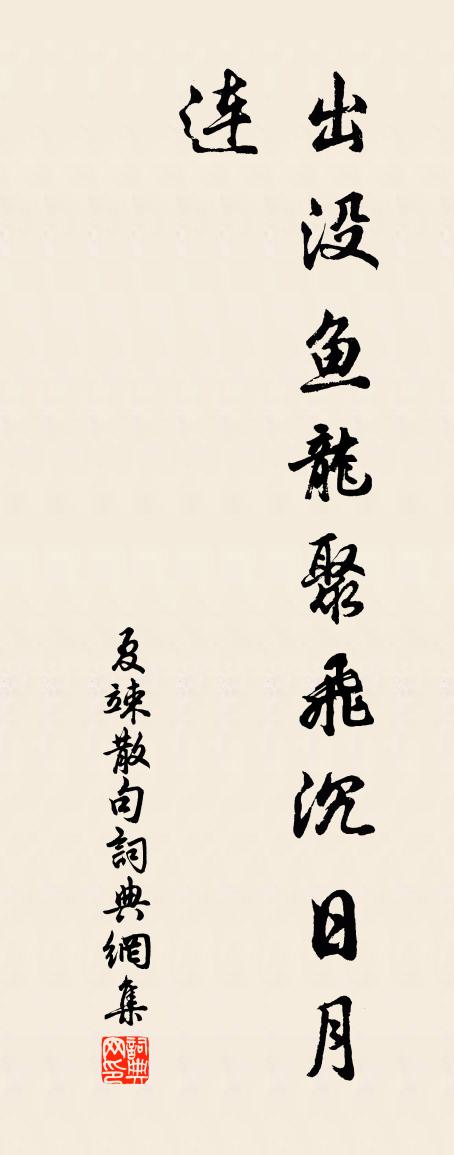 出没鱼龍聚飛沉日月
連
夏竦散句詞典網集
詞典网印